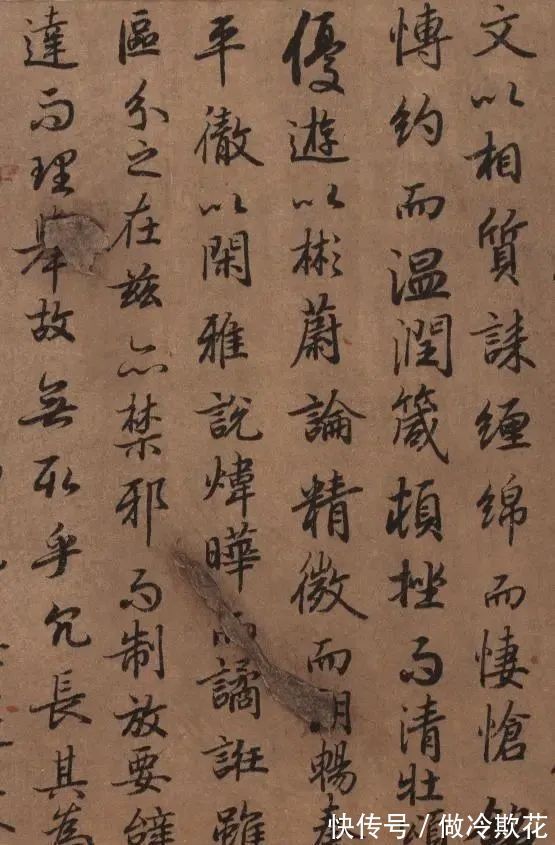 文以相質誄纏綿而悽愴銘
慱約而温潤箴頓挫而清壯頌
優遊以彬蔚論精微而朗暢奏
平徹以閑雅說煒曄而譎誑雖
區分之在茲亦禁邪而制放要辭
達而理舉故無取乎冗長其為
快传号 / 做冷欺花